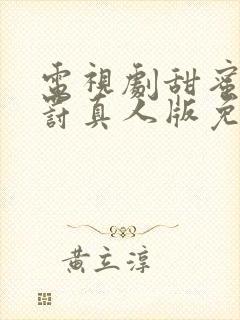 電視劇甜蜜
討真人版免
黃立淳